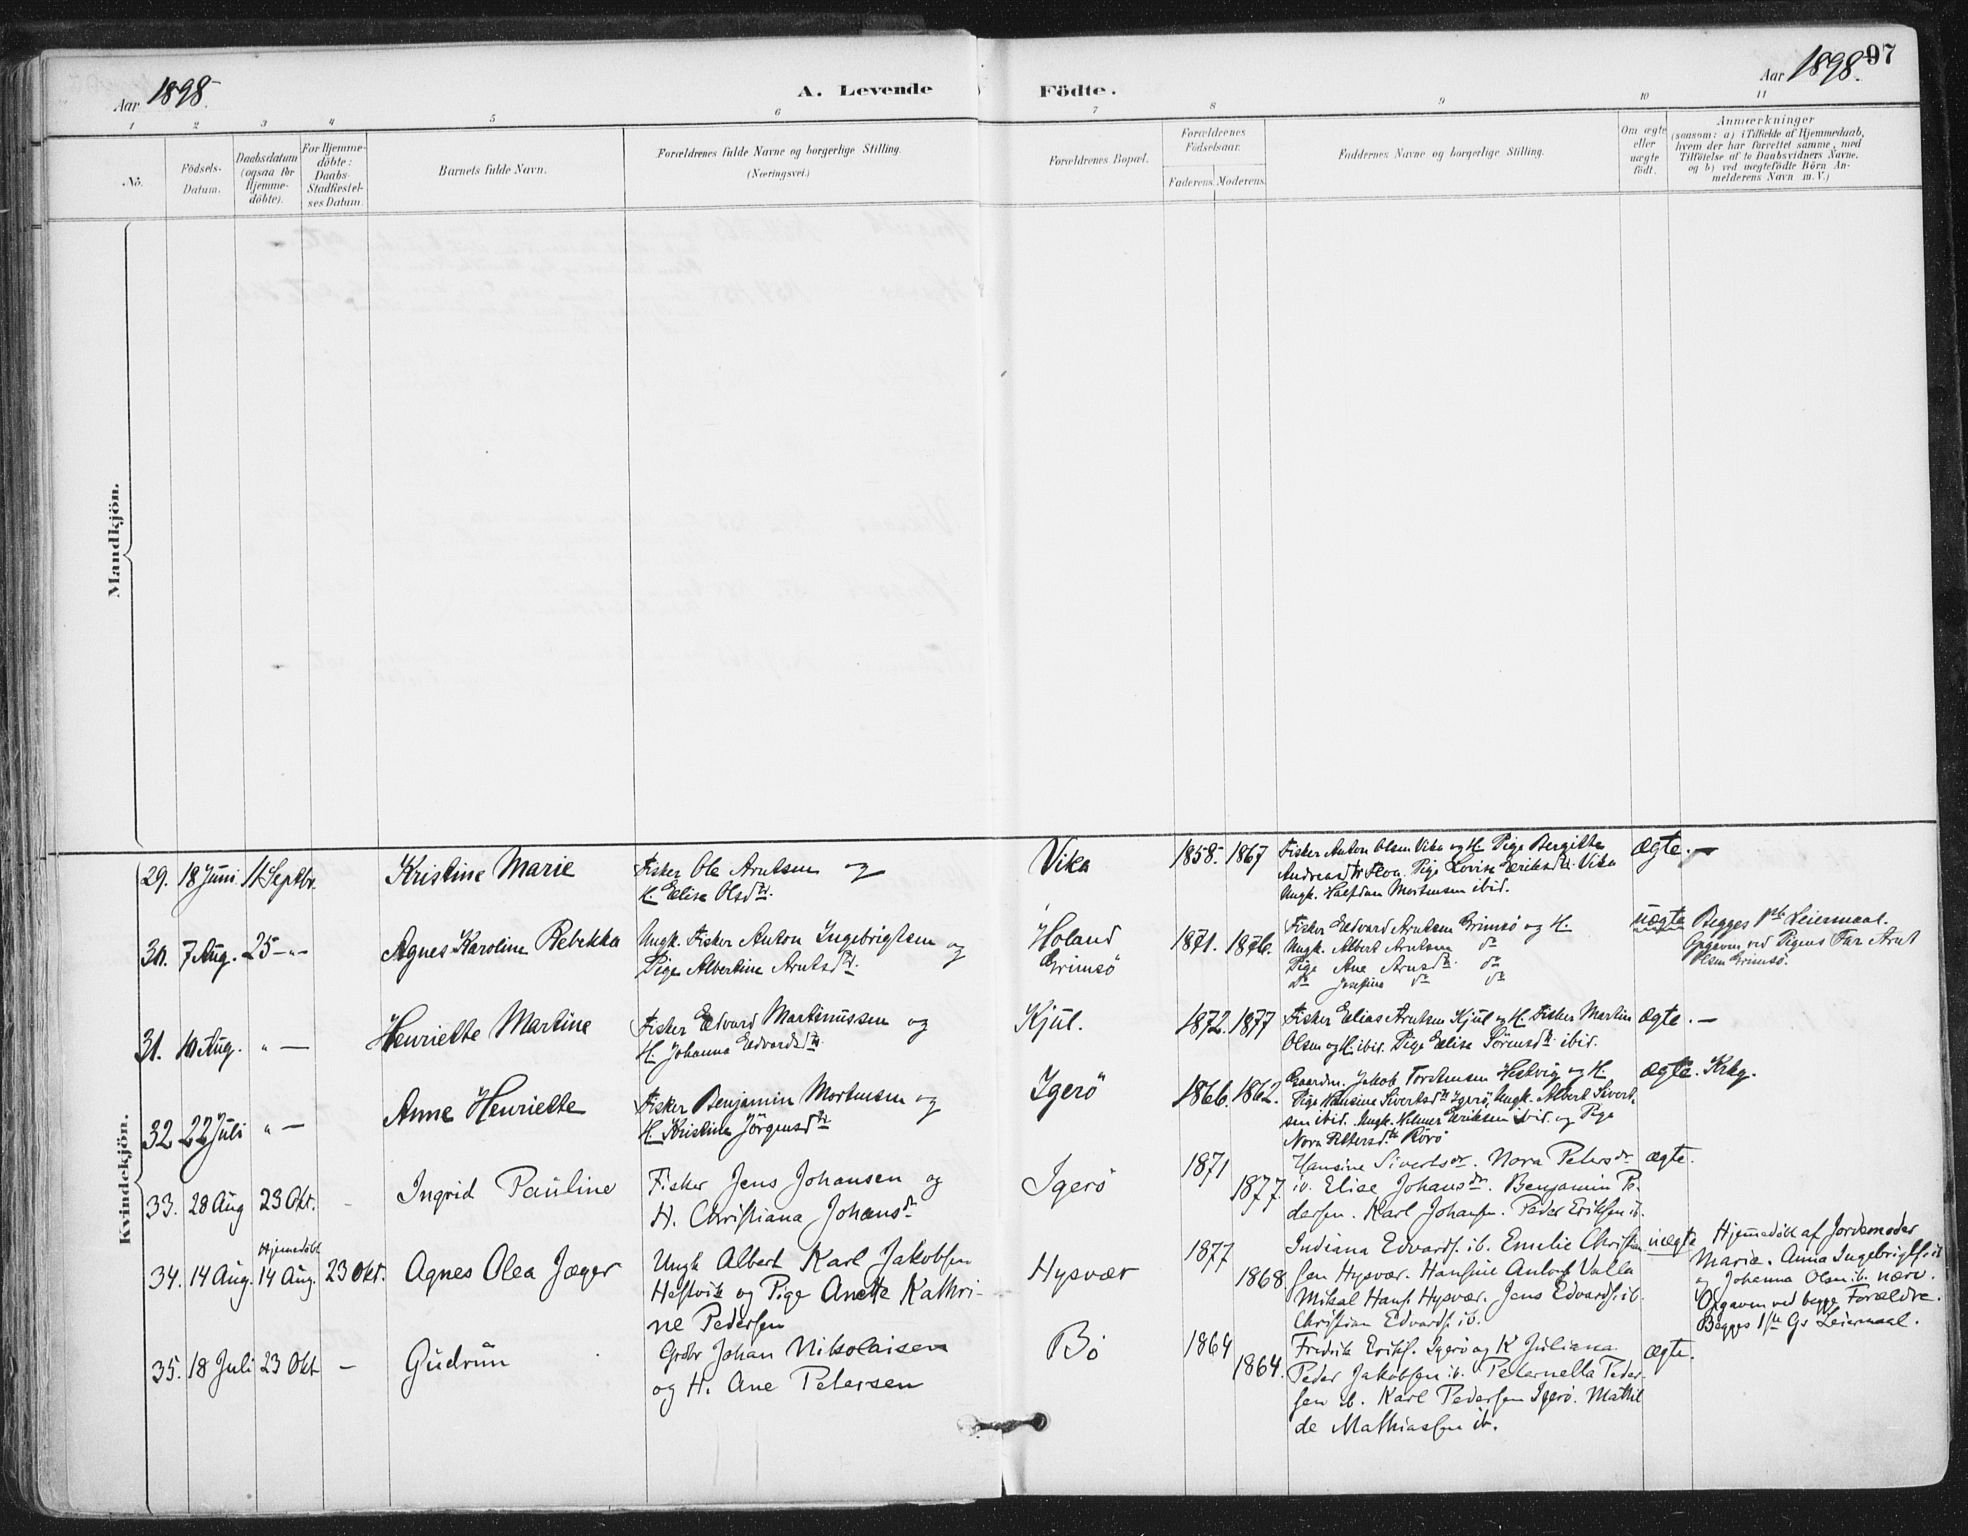 Aar 1898.
A. Levende Födte.
Aar 1898.
97
1 2 3 4 5 6 7 8 9 10 11
No.
Födsels-
Datum.
Daabsdatum
(ogsaa för
Hjemme-
døbte).
For Hjemme-
döbte:
Daabs-
Stadfæstel-
ses Datum.
Barnets fulde Navn.
Forældrenes fulde Navne og borgerlige Stilling.
(Næringsvei.)
Forældrenes Bopæl.
Forældrenes
Födselsaar.
Faderens. Moderens.
Faddernes Navne og borgerlige Stilling.
Om ægte
eller
uægte
födt.
Anmærkninger
(saasom: a) i Tilfælde af Hjemmedaab,
hvem der har forrettet samme, med
Tilföielse af to Daabsvidners Navne.
og b) ved uægtefödte Börn An-
melderens Navn m. V.)
Mandkjön.
Kvindekjön.
29. 18 Juni 11 Septbr. Kristine Marie
Fisker Ole Arntsen og
H. Elise Olsdtr.
Vika 1858. 1867
Fisker Anton Olsen Vika og H. Pige Bergitte
Andreasdtr Pige Lovise Eriksdtr. Vika
Ungk. Halfdan Mortensen ibid.
ægte. —
30. 7 Aug. 25 -"- Agnes Karoline Rebekka
Ungk. Fisker Anton Ingebrigtsen og
Pige Albertine Arntsdtr.
Holand
Grimsø
1871. 1876.
Fisker Edvard Arntsen Grimsø og H.
Ungk. Albert Arntsen do
Pige Ane Arnsdtr. do
do Josefine do do
uægte
Begges 1ste Leiermaal.
Opgaven ved Pigens Far Arnt
Olsen Grimsø.
31. 10 Aug. " — Henriette Martine
Fisker Edvard Martinussen og
H. Johanna Edvardsdtr.
Kjul. 1872. 1877
Fisker Elias Arntsen Kjul og H. Fisker Martin
Olsen og H. ibid. Pige Elise Sörensdtr. ibid.
ægte. —
32 22 Juli " — Anne Henriette
Fisker Benjamin Mortensen og
H. Kristine Jörgensdtr.
Igerö 1866. 1862.
Gaardm. Jakob Torstensen Hestvig og H.
Pige Hansine Sivertsdtr Igerö, Ungk. Albert Sivert-
sen ibid. Ungk. Helmer Eriksen ibid. og Pige
Nora Pettersdtr. Rörö
ægte. Krkg.
33. 28 Aug 23 Okt. - Ingrid Pauline
Fisker Jens Johansen og
H. Christiana Johansdr
Igerö 1871 1877.
Hansine Sivertsdr. Nora Petersdr
ib. Elise Johansdr. Benjamin Pe-
dersen. Karl Johansen. Peder Eriksen ib.
ægte.
34. 14 Aug. Hjemmedøbt 14 Aug. 23 Okt. Agnes Olea Jæger
Ungk Albert Karl Jakobsen
Hestvik og Pige Anette Kathri-
ne Pedersen
Hysvær 1877 1868.
Indiana Edvards. ib. Emelie Christian-
sen Hysvær. Hansine Antons Valla
Mikal Hans. Hysvær. Jens Edvards. ib.
Christian Edvards. ib.
uægte
Hjemmedöbt af Jordemoder
Maria. Anna Ingebrigts. ib
og Johanna Olsen ib. nærv.
Opgaven ved begge Forældre.
Begges 1ste Gs Leiermaal.
35. 18 Juli 23 Okt — Gudrun
Grdbr Johan Nikolaisen
og H. Ane Petersen
Bö 1864 1864.
Fredrik Eriks. Igerö og K Juliana.
Peder Jakobsen ib. Peternella Peder-
sen ib. Karl Pedersen Igerö. Mathil
de Mathiassen ib.
ægte.